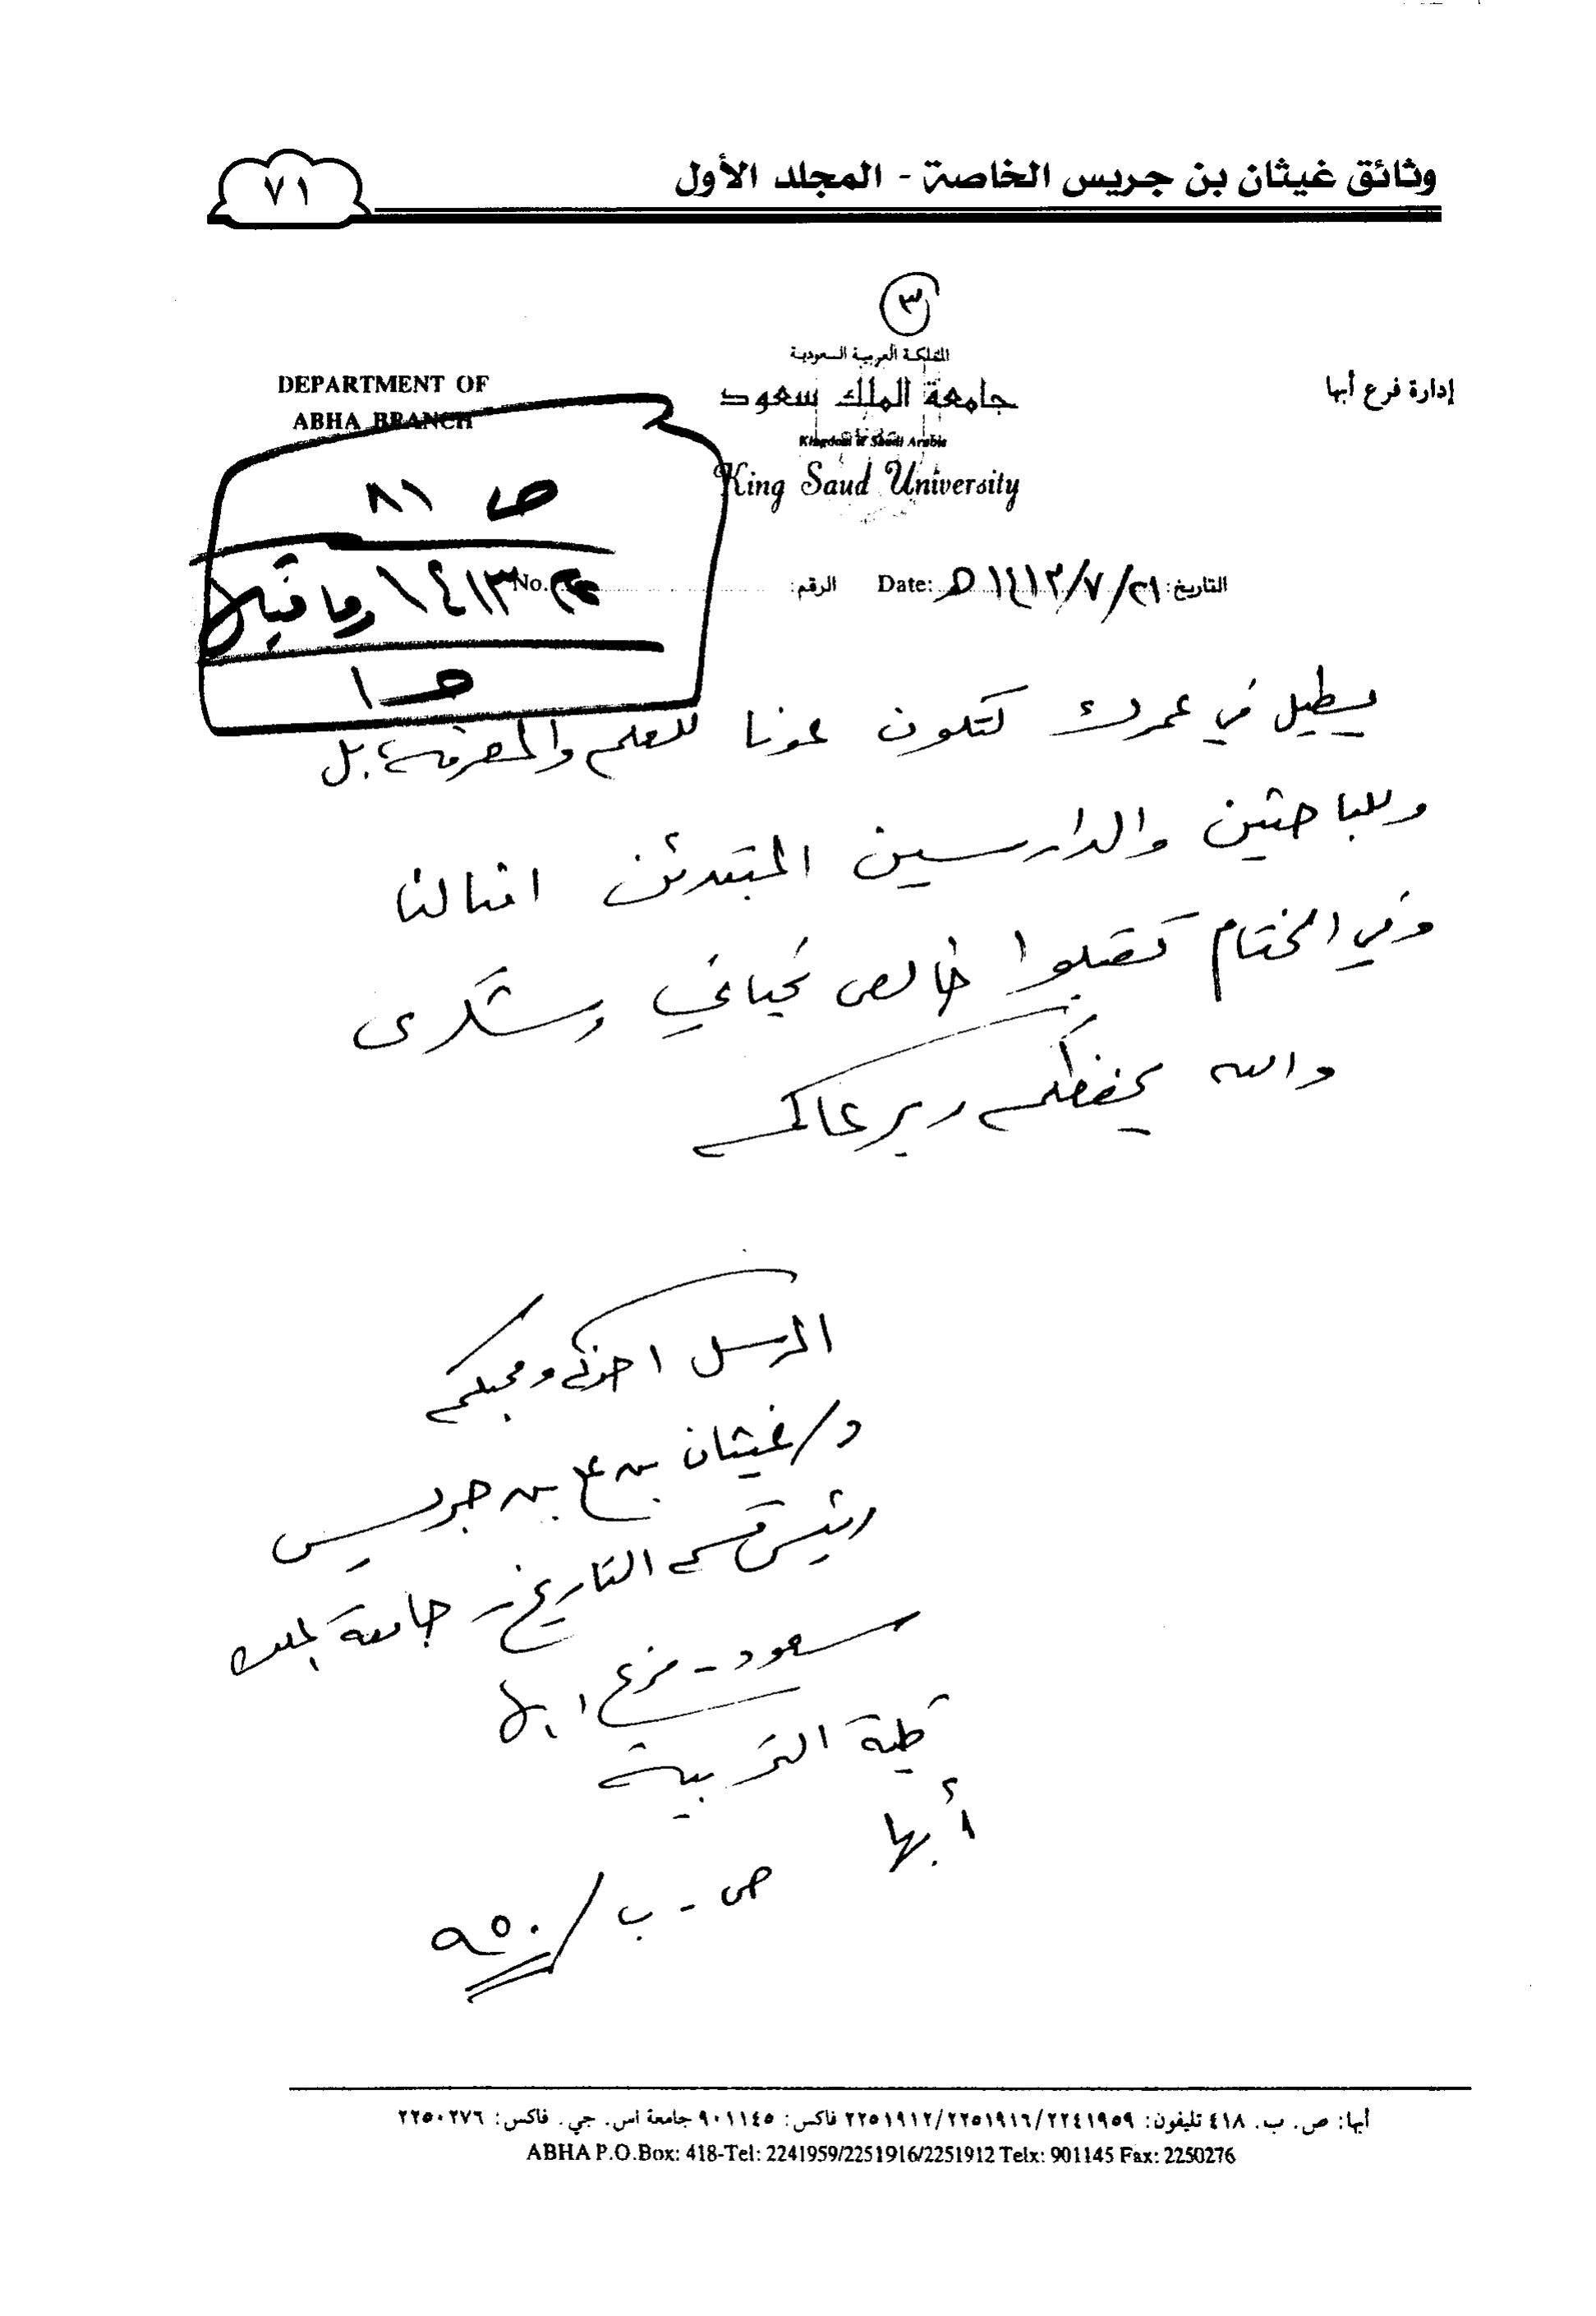 وثائق غيثان بن جريس الخاصة - المجلد الأول
٧١
٣
المملكة العربية السعودية
إدارة فرع أبها
جامعة الملك سعود
DEPARTMENT OF
ABHA BRANCH
Kingdom of Saudi Arabia
King Saud University
ص ٨١
التاريخ: ٢١/٧/١٤١٣هـ Date:
الرقم: No.
١٤١٣ وما قبلها
حـ ١
يطيل في عمرك لتكون عونا للعلم والمعرفة، بل
وللباحثين والدارسين المبتدئين امثالنا
وفي الختام تقبلوا خالص تحياتي وشكري
والله يحفظكم ويرعاكم
المرسل اخوكم ومحبكم
د/ غيثان بن علي بن جريس
رئيس قسم التاريخ - جامعة الملك
سعود - فرع ابها
كلية التربية
أبها
ص - ب / ٩٥٠
أبها: ص. ب. ٤١٨ تليفون: ٢٢٤١٩٥٩/٢٢٥١٩١٦/٢٢٥١٩١٢ فاكس: ٩٠١١٤٥ جامعة اس. جي. فاكس: ٢٢٥٠٢٧٦
ABHA P.O.Box: 418-Tel: 2241959/2251916/2251912 Telx: 901145 Fax: 2250276